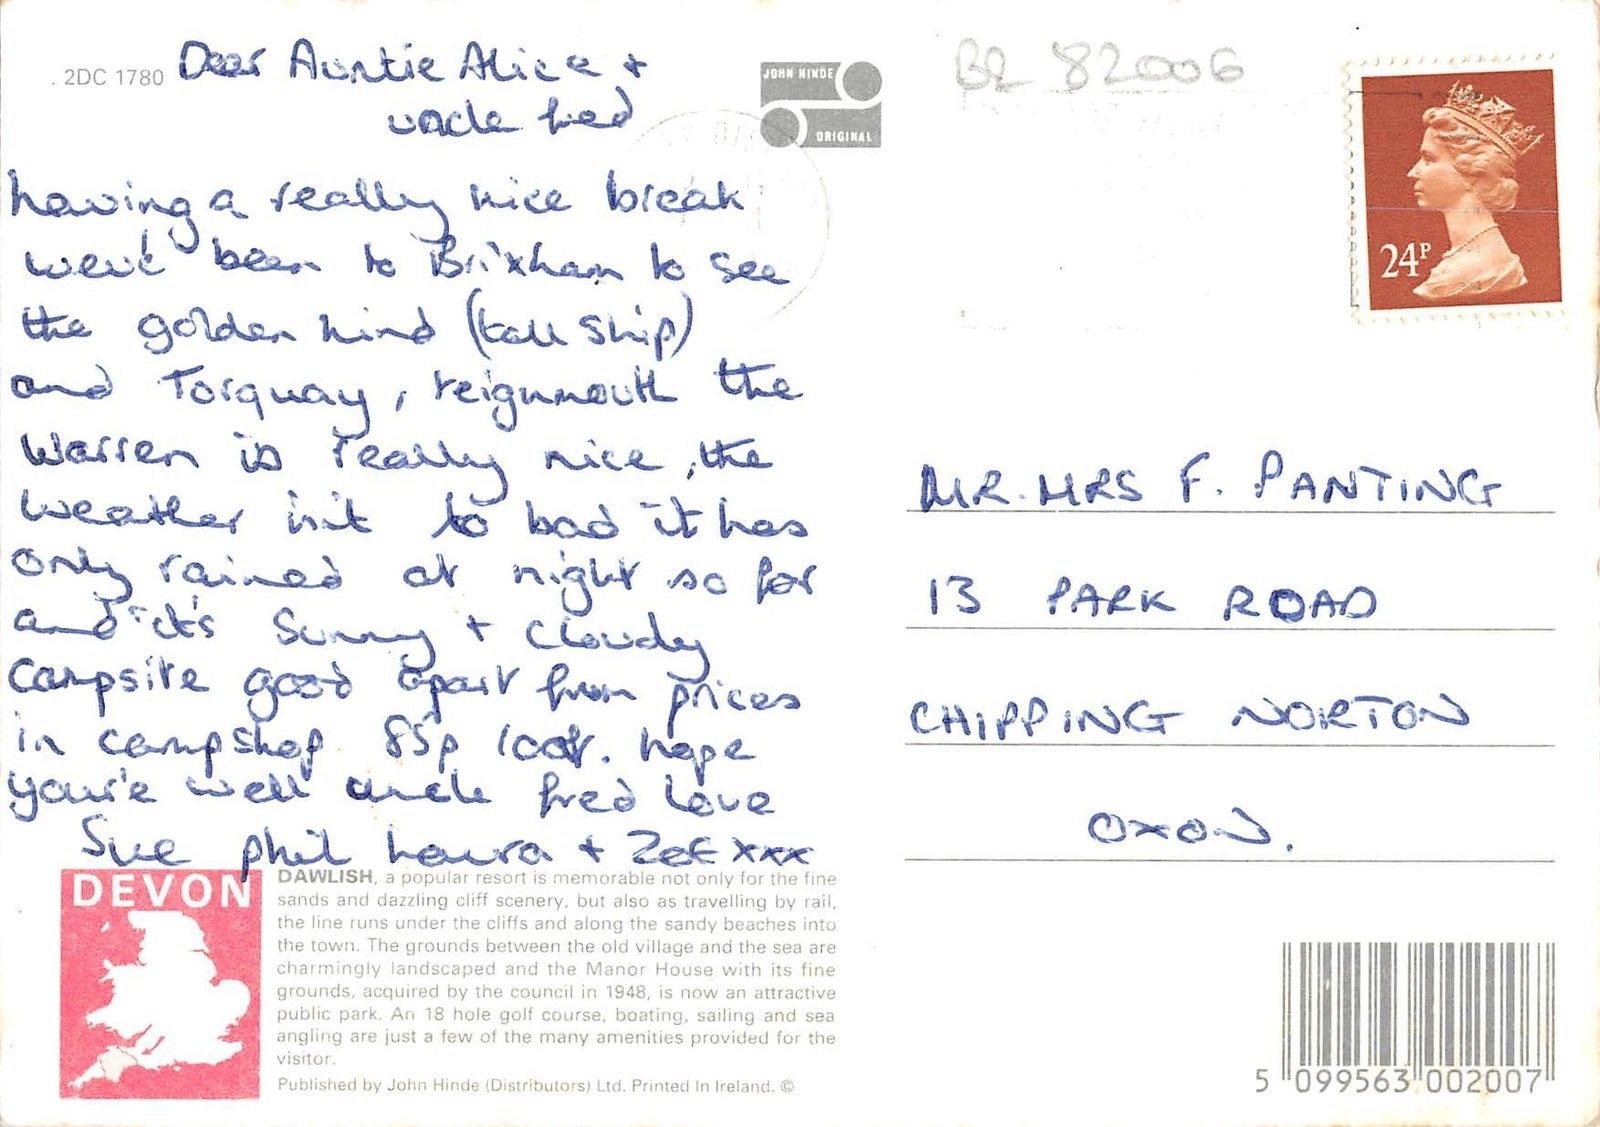 . 2DC 1780
Dear Auntie Alice +
uncle fred
having a really nice break
we've been to Brixham to see
the golden hind (tall ship)
and Torquay, teignmouth the
Warren is really nice, the
weather isit to bad it has
only rained at night so far
and it's Sunny + cloudy
Campsite good apart from prices
in campshop 85p loaf. hope
your'e well uncle fred Love
Sue phil Laura + Zoë xxx
JOHN HINDE
ORIGINAL
BR 82006
24P
MR. MRS F. PANTING
13 PARK ROAD
CHIPPING NORTON
OXON.
DEVON
DAWLISH, a popular resort is memorable not only for the fine
sands and dazzling cliff scenery, but also as travelling by rail,
the line runs under the cliffs and along the sandy beaches into
the town. The grounds between the old village and the sea are
charmingly landscaped and the Manor House with its fine
grounds, acquired by the council in 1948, is now an attractive
public park. An 18 hole golf course, boating, sailing and sea
angling are just a few of the many amenities provided for the
visitor.
Published by John Hinde (Distributors) Ltd. Printed In Ireland. ©
5 099563 002007